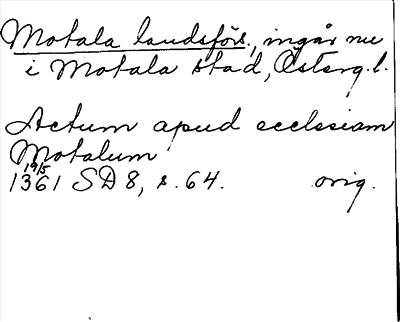 Motala landsförs., ingår nu
i Motala stad, Österg. l.
Actum apud ecclesiam
Motalum
19/5
1361 SD 8, s. 64. orig.